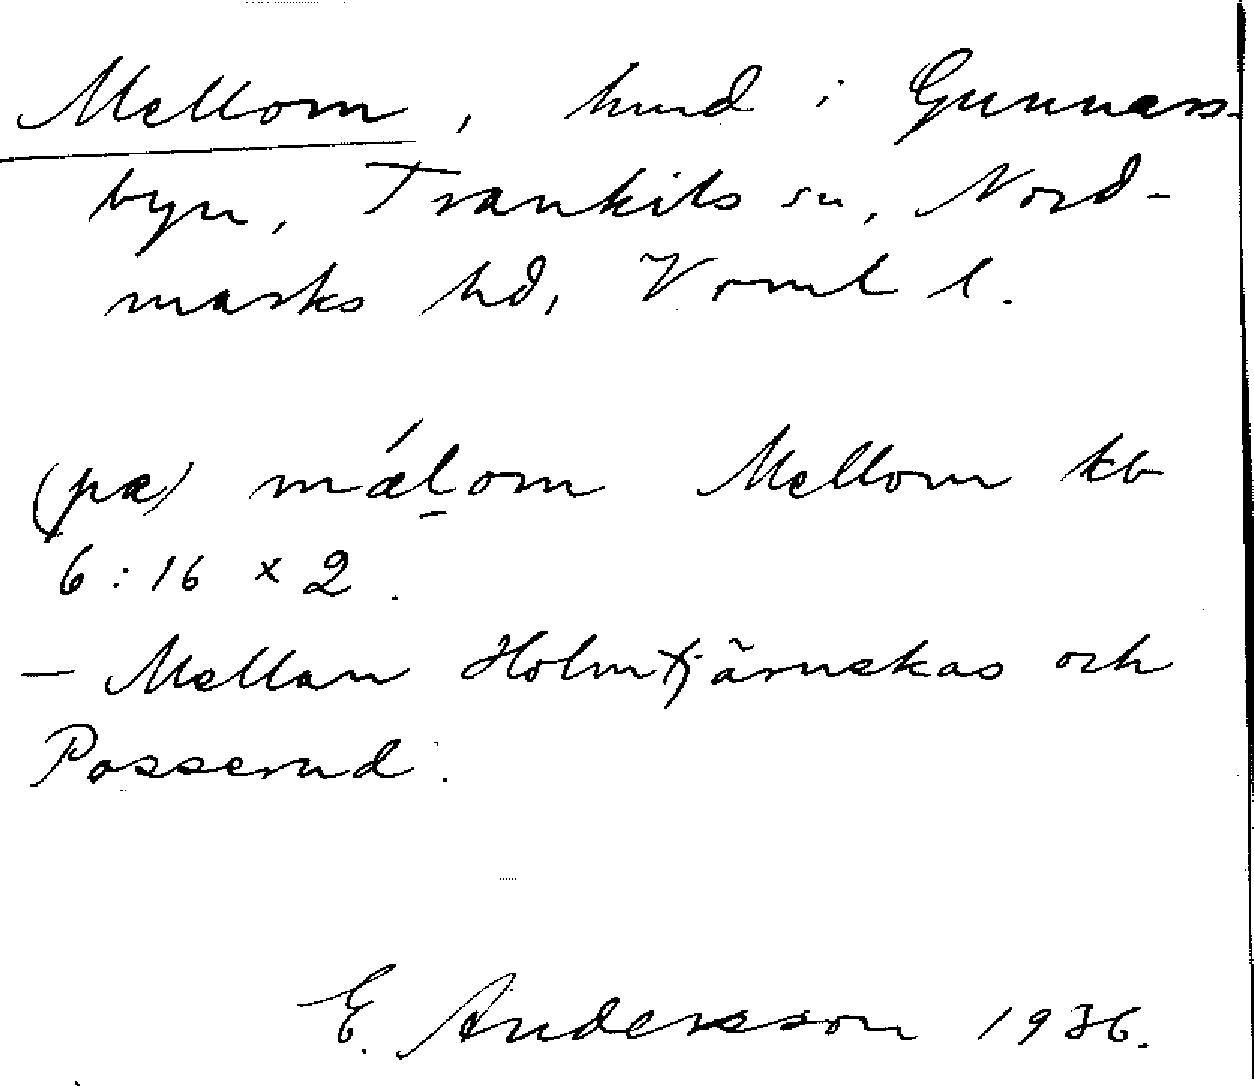 Mellom, hmd i Gunnars-
byn, Trankils sn, Nord-
marks hd, Vrml l.
(pæ) mǽlom Mellom kb
6:16 x 2.
– Mellan Holmtjärnekas och
Posserud.
E. Andersson 1936.